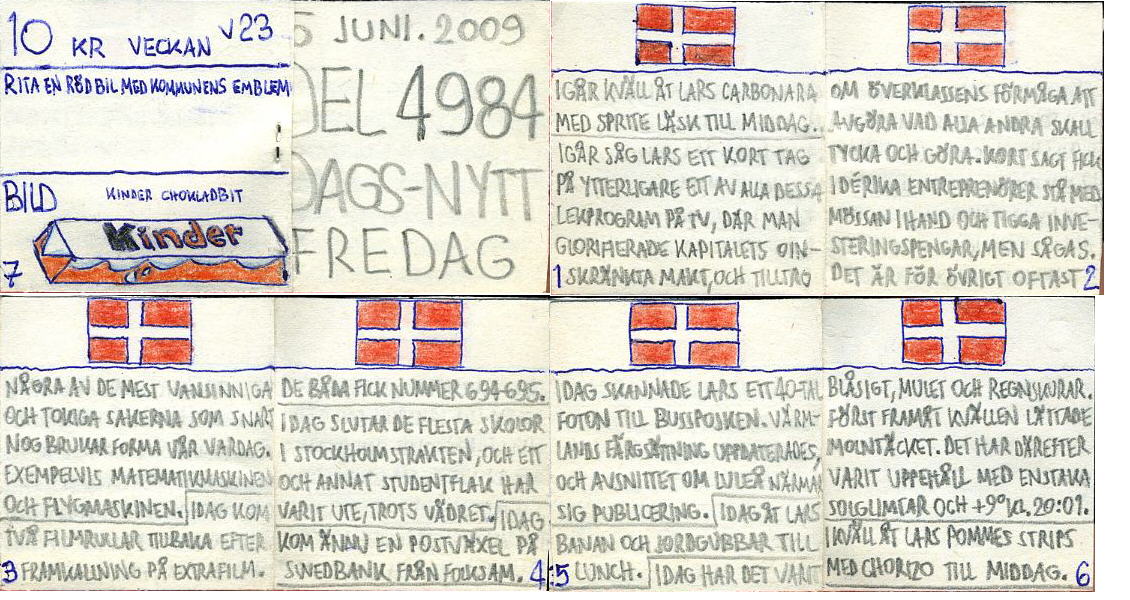 10 KR VECKAN V23
RITA EN RÖD BIL MED KOMMUNENS EMBLEM
BILD KINDER CHOKLADBIT
Kinder
7
5 JUNI. 2009
DEL 4984
DAGS-NYTT
FREDAG
IGÅR KVÄLL ÅT LARS CARBONARA
MED SPRITE LÄSK TILL MIDDAG.
IGÅR SÅG LARS ETT KORT TAG
PÅ YTTERLIGARE ETT AV ALLA DESSA
LEKPROGRAM PÅ TV, DÄR MAN
GLORIFIERADE KAPITALETS OIN-
1 SKRÄNKTA MAKT, OCH TILLTRO
OM ÖVERKLASSENS FÖRMÅGA ATT
AVGÖRA VAD ALLA ANDRA SKALL
TYCKA OCH GÖRA. KORT SAGT FICK
IDÉRIKA ENTREPRENÖRER STÅ MED
MÖSSAN I HAND OCH TIGGA INVE-
STERINGSPENGAR, MEN SÅGAS.
DET ÄR FÖR ÖVRIGT OFTAST 2
NÅGRA AV DE MEST VANSINNIGA
OCH TOKIGA SAKERNA SOM SNART
NOG BRUKAR FORMA VÅR VARDAG.
EXEMPELVIS MATEMATIKMASKINEN
OCH FLYGMASKINEN. IDAG KOM
TVÅ FILMRULLAR TILLBAKA EFTER
3 FRAMKALLNING PÅ EXTRAFILM.
DE BÅDA FICK NUMMER 694-695.
IDAG SLUTAR DE FLESTA SKOLOR
I STOCKHOLMSTRAKTEN, OCH ETT
OCH ANNAT STUDENTFLAK HAR
VARIT UTE, TROTS VÄDRET. IDAG
KOM ÄNNU EN POSTVÄXEL PÅ
SWEDBANK FRÅN FOLKSAM. 4
IDAG SKANNADE LARS ETT 40-TAL
FOTON TILL BUSSPOSKEN. VÄRM-
LANDS FÄRGSÄTTNING UPPDATERADES,
OCH AVSNITTET OM LULEÅ NÄRMAR
SIG PUBLICERING. IDAG ÅT LARS
BANAN OCH JORDGUBBAR TILL
5 LUNCH. IDAG HAR DET VARIT
BLÅSIGT, MULET OCH REGNSKURAR.
FÖRST FRAMÅT KVÄLLEN LÄTTADE
MOLNTÄCKET. DET HAR DÄREFTER
VARIT UPPEHÅLL MED ENSTAKA
SOLGLIMTAR OCH +9° KL. 20:01.
IKVÄLL ÅT LARS POMMES STRIPS
MED CHORIZO TILL MIDDAG. 6